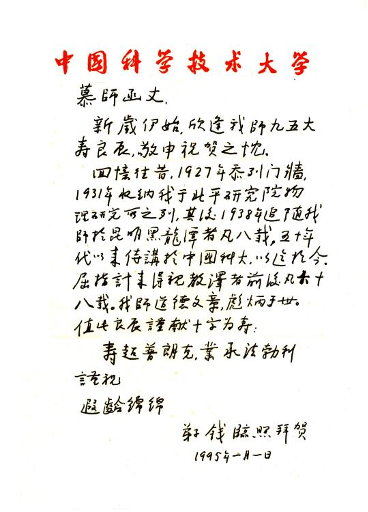 中国科学技术大学
慕師函丈,
新歲伊始,欣逢我師九五大
寿良辰,敬申祝贺之忱.
回憶往昔,1927年忝列门牆,
1931年收纳我于北平研究院物
理研究所之列,其後1938年追随我
師於昆明黑龍潭者凡八載,五十年
代以来侍講於中国科大,以迄於今.
屈指計来得親教澤者前後凡六十
八載.我師道德文章,彪炳于世.
值此良辰謹献十字为寿:
寿超普朗克,業承法勃利
謹祝
遐齡綿綿
弟子 钱临照拜贺
1995年一月一日